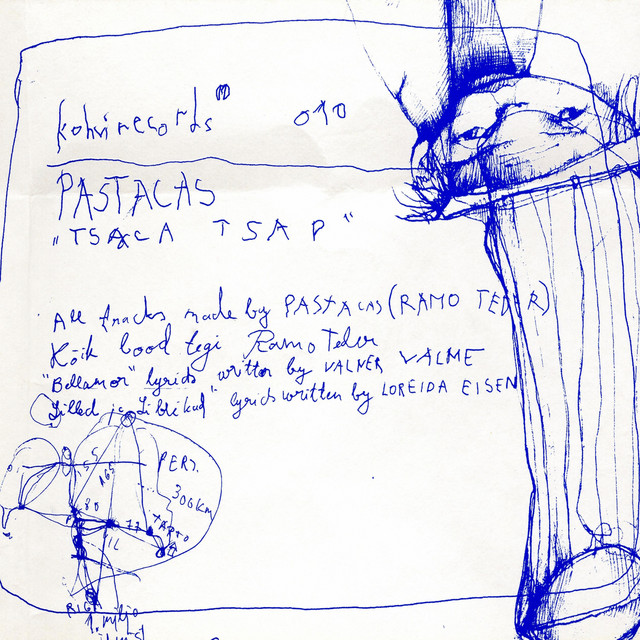 kohvirecords 010
PASTACAS
"TSACA TSAP"
All tracks made by PASTACAS (RAMO TEDER)
Kõik lood tegi Ramo Teder
"Bellamor" lyrics written by VALNER VALME
"Lilled ja Librikud" lyrics written by LOREIDA EISEN
55
165
PERS.
300km
80
77
TARTO
VIL
RIGA